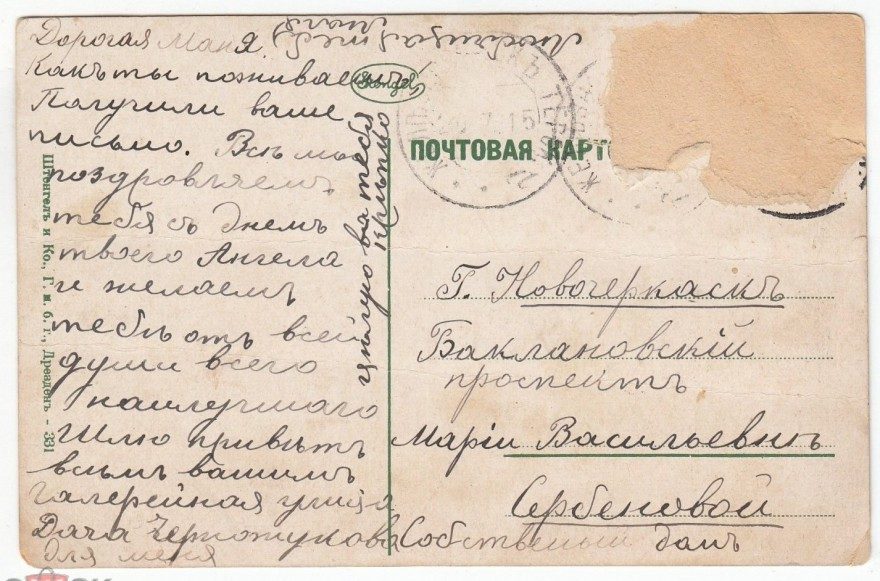 Дорогая Маня
Какъ ты поживаешь
Получили ваше
письмо. Всѣ мы
поздровляемъ
тебя съ днемъ
твоего Ангела
и желаемъ
тебѣ отъ всей
души всего
наилучшаго
Шлю привѣтъ
всѣмъ вашимъ
Галерейная улица
Дача
для меня
цѣлую ва тебя
крѣпко
Любящая тебя
Stengel
ПОЧТОВАЯ КАРТ
Г. Новочеркаскъ
Баклановскій
проспектъ
Маріи Васильевнѣ
Сербеновой
Собственый домъ
Штенгель и Ко., Г. м. б. г., Дрезденъ - 331